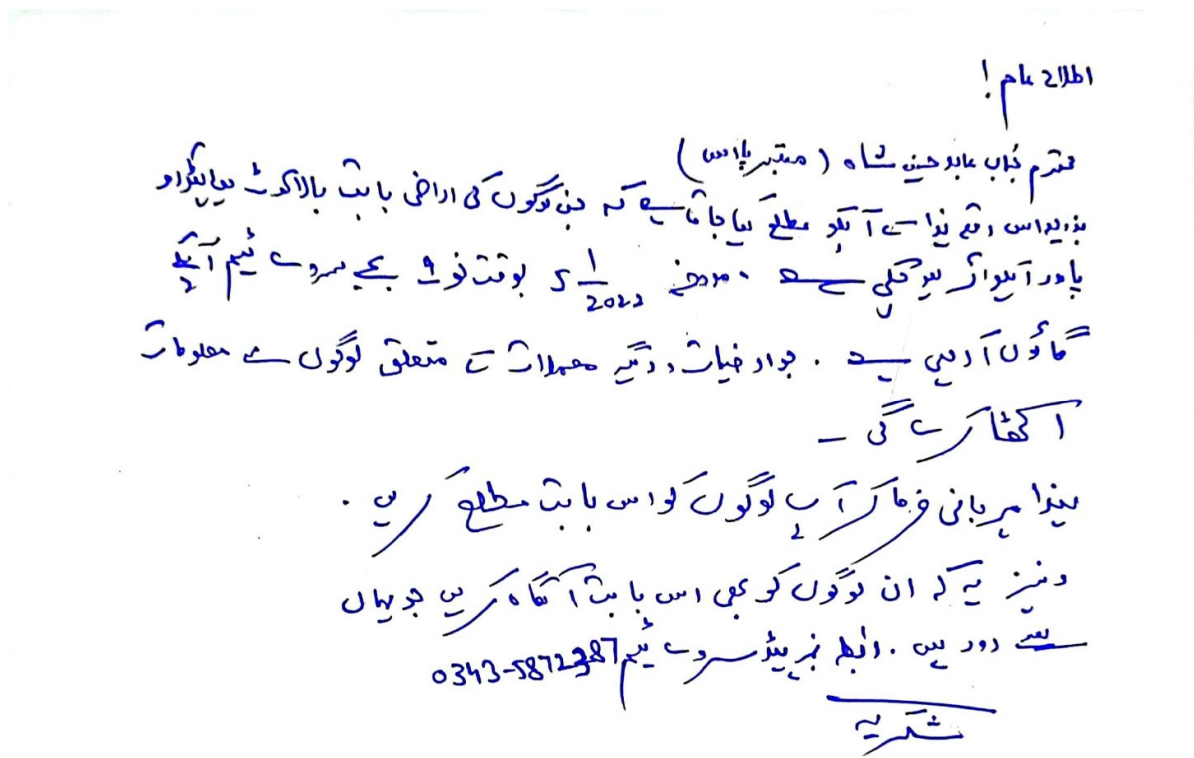 اطلاع عام !
محترم جناب عابد حسین شاہ ( معتبر پارس )
بذریعہ اس رقعہ ہذا سے آپکو مطلع کیا جاتا ہے کہ جن لوگوں کی اراضی بابت بالاکوٹ ہائیڈرو
پاور آیکوائر ہو چکی ہے ۔ مورخہ 5 1/2022 بوقت نو 9 بجے سروے ٹیم آپکے
گاؤں آ رہی ہے ۔ جو اراضیات و دیگر معملات کے متعلق لوگوں سے معلومات
اکھٹا کرے گی ۔
لہذا مہربانی فرما کر آپ لوگوں کو اس بابت مطلع کریں ۔
ونیز یہ کہ ان لوگوں کو بھی اس بابت آگاہ کریں جو یہاں
سے دور ہیں ۔ رابطہ نمبر ہیڈ سروے ٹیم 0343-5872387
شکریہ